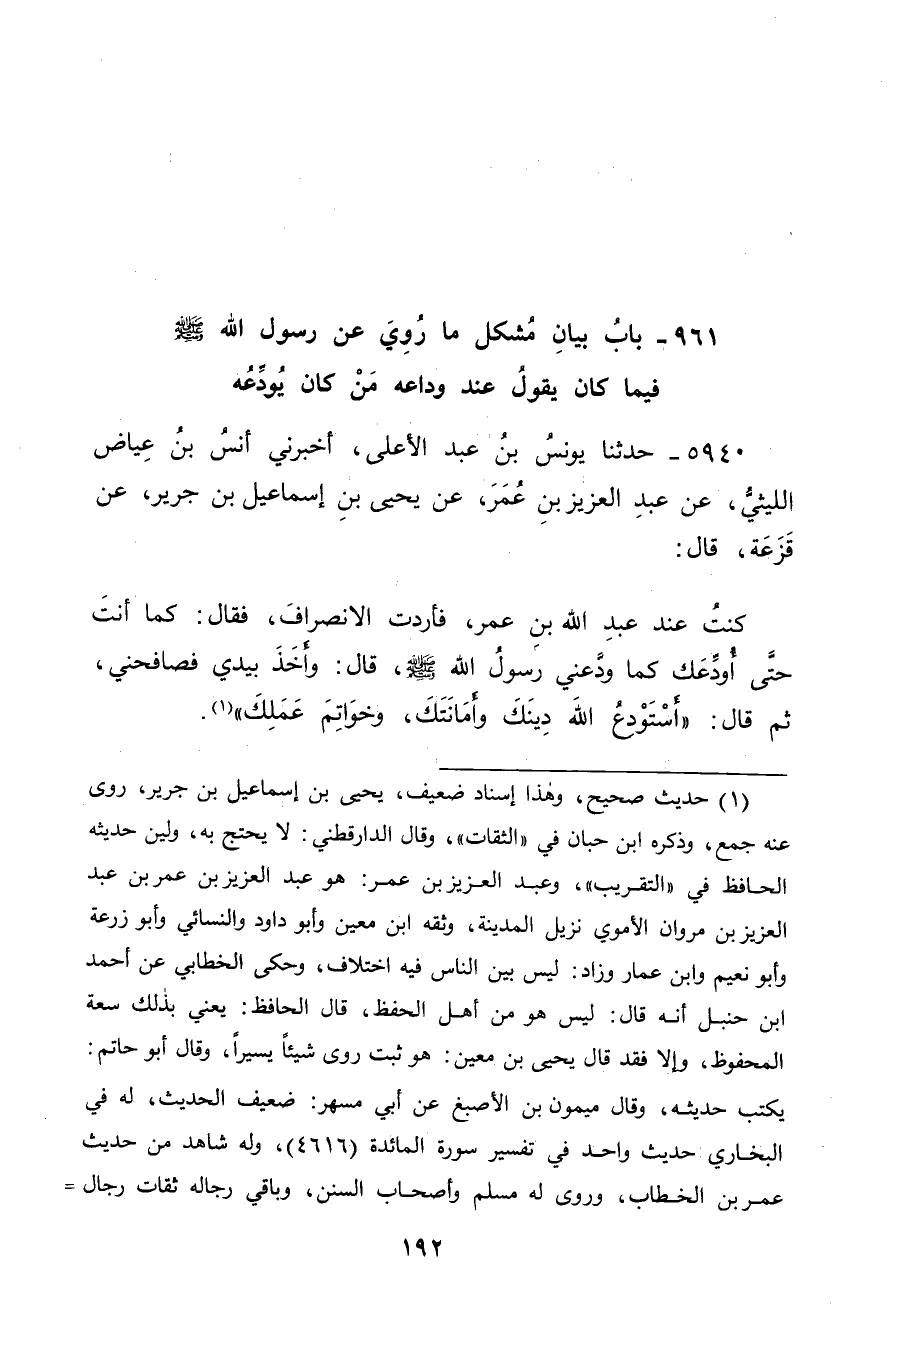 ٩٦١ـ بابُ بيانِ مُشكل ما رُوِيَ عن رسول الله ﷺ
فيما كان يقولُ عند وداعه مَنْ كان يُودِّعُه
٥٩٤٠ـ حدثنا يونسُ بنُ عبد الأعلى، أخبرني أنسُ بنُ عِياض
الليثيُّ، عن عبدِ العزيز بنِ عُمَرَ، عن يحيى بنِ إسماعيل بن جرير، عن
قَزَعَة، قال:
كنتُ عند عبدِ الله بنِ عمر، فأردت الانصرافَ، فقال: كما أنتَ
حتَّى أُودِّعَك كما ودَّعني رسولُ الله ﷺ، قال: وأَخَذَ بيدي فصافحني،
ثم قال: «أَسْتَودِعُ اللهَ دِينَكَ وأَمَانَتَكَ، وخوَاتِمَ عَمَلِكَ»(١).
(١) حديث صحيح، وهٰذا إسناد ضعيف، يحيى بن إسماعيل بن جرير، روى
عنه جمع، وذكره ابن حبان في «الثقات»، وقال الدارقطني: لا يحتج به، ولين حديثه
الحافظ في «التقريب»، وعبد العزيز بن عمر: هو عبد العزيز بن عمر بن عبد
العزيز بن مروان الأموي نزيل المدينة، وثقه ابن معين وأبو داود والنسائي وأبو زرعة
وأبو نعيم وابن عمار وزاد: ليس بين الناس فيه اختلاف، وحكى الخطابي عن أحمد
ابن حنبل أنه قال: ليس هو من أهل الحفظ، قال الحافظ: يعني بذٰلك سعة
المحفوظ، وإلا فقد قال يحيى بن معين: هو ثبت روى شيئاً يسيراً، وقال أبو حاتم:
يكتب حديثه، وقال ميمون بن الأصبغ عن أبي مسهر: ضعيف الحديث، له في
البخاري حديث واحد في تفسير سورة المائدة (٤٦١٦)، وله شاهد من حديث
عمر بن الخطاب، وروى له مسلم وأصحاب السنن، وباقي رجاله ثقات رجال =
١٩٢